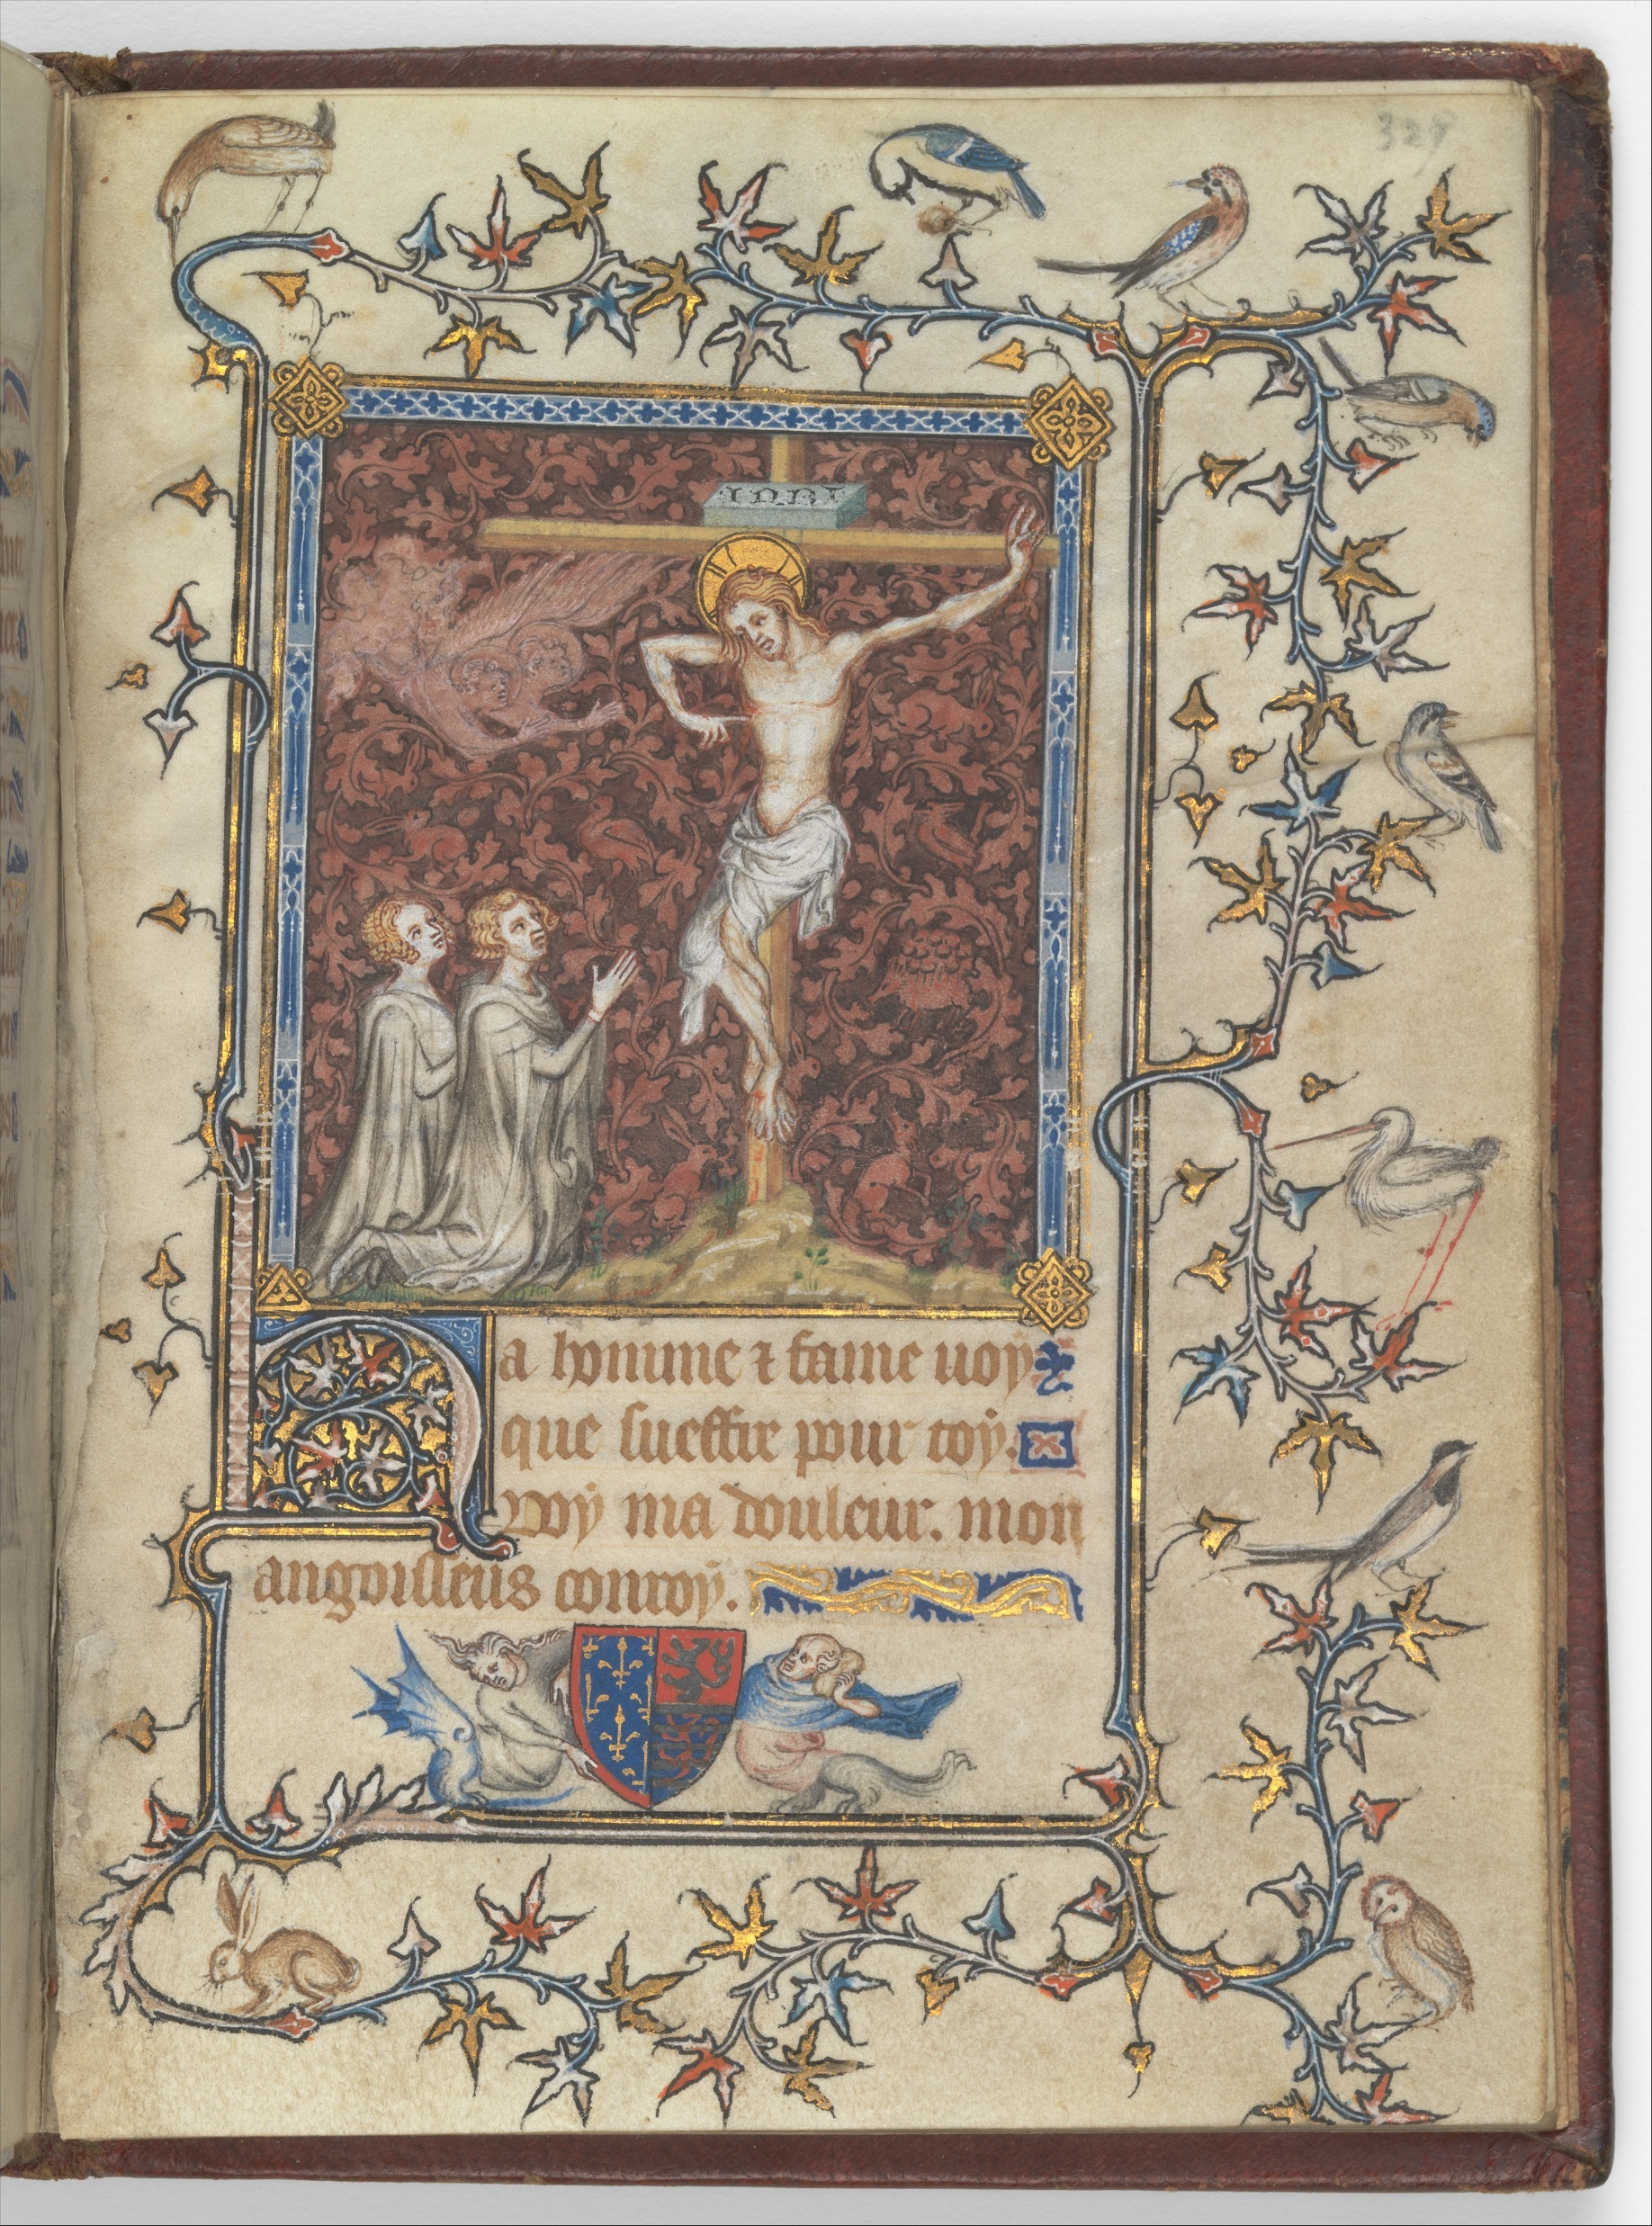 327
INRI
Ha homme ⁊ fame uoy
que sueffre pour toy.
Voy ma douleur. mon
angoisseus conroy.